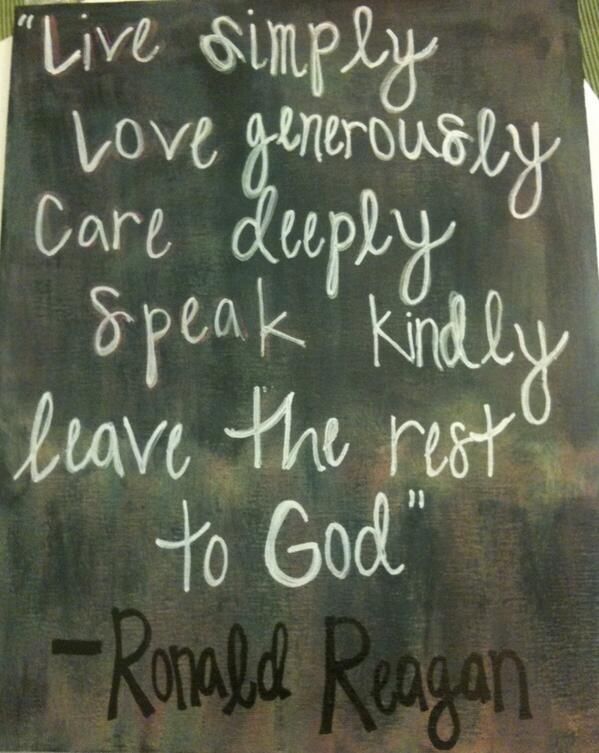 "Live simply
Love generously
Care deeply
Speak kindly
leave the rest
to God"
-Ronald Reagan